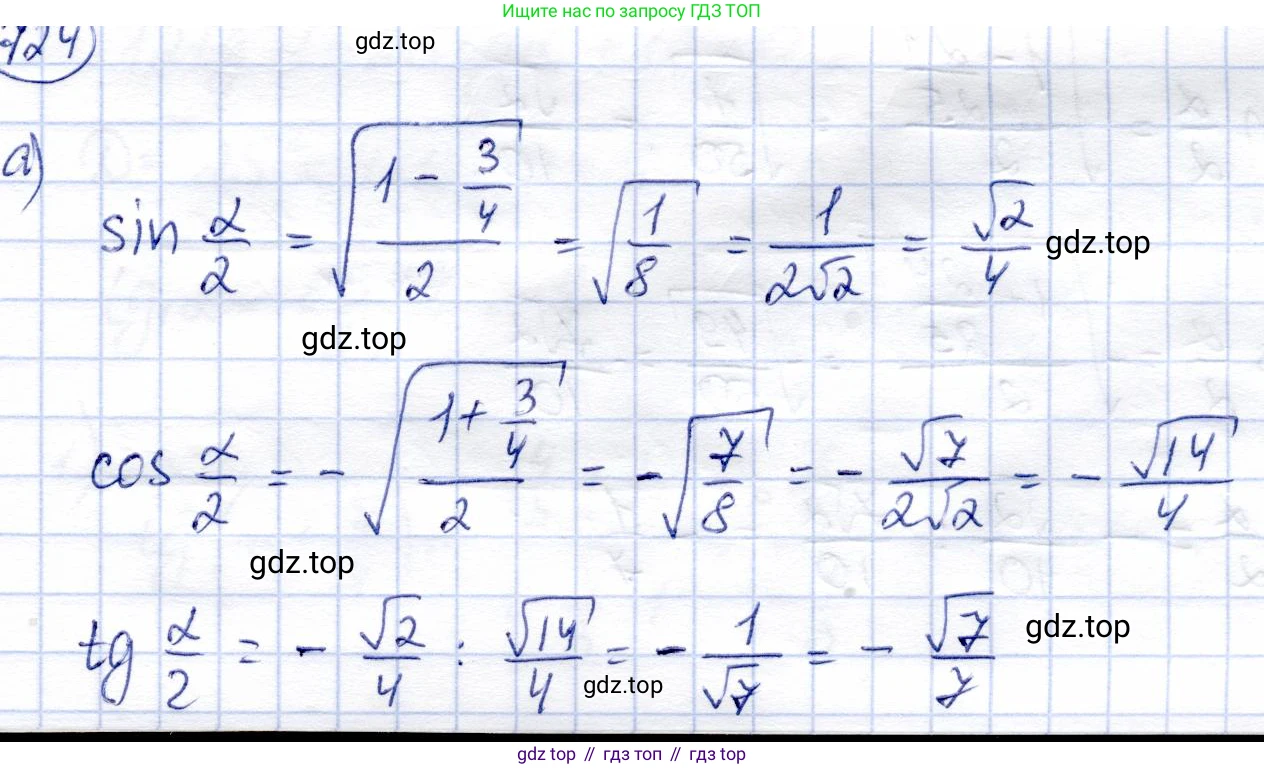 Ищите нас по запросу ГДЗ ТОП
124
gdz.top
а)
sin α/2 = √((1 - 3/4)/2) = √(1/8) = 1/(2√2) = √2/4 gdz.top
gdz.top
cos α/2 = - √((1 + 3/4)/2) = - √(7/8) = - √7/(2√2) = - √14/4
gdz.top
tg α/2 = - √2/4 : √14/4 = - 1/√7 = - √7/7 gdz.top
gdz.top
gdz top // гдз топ // gdz top